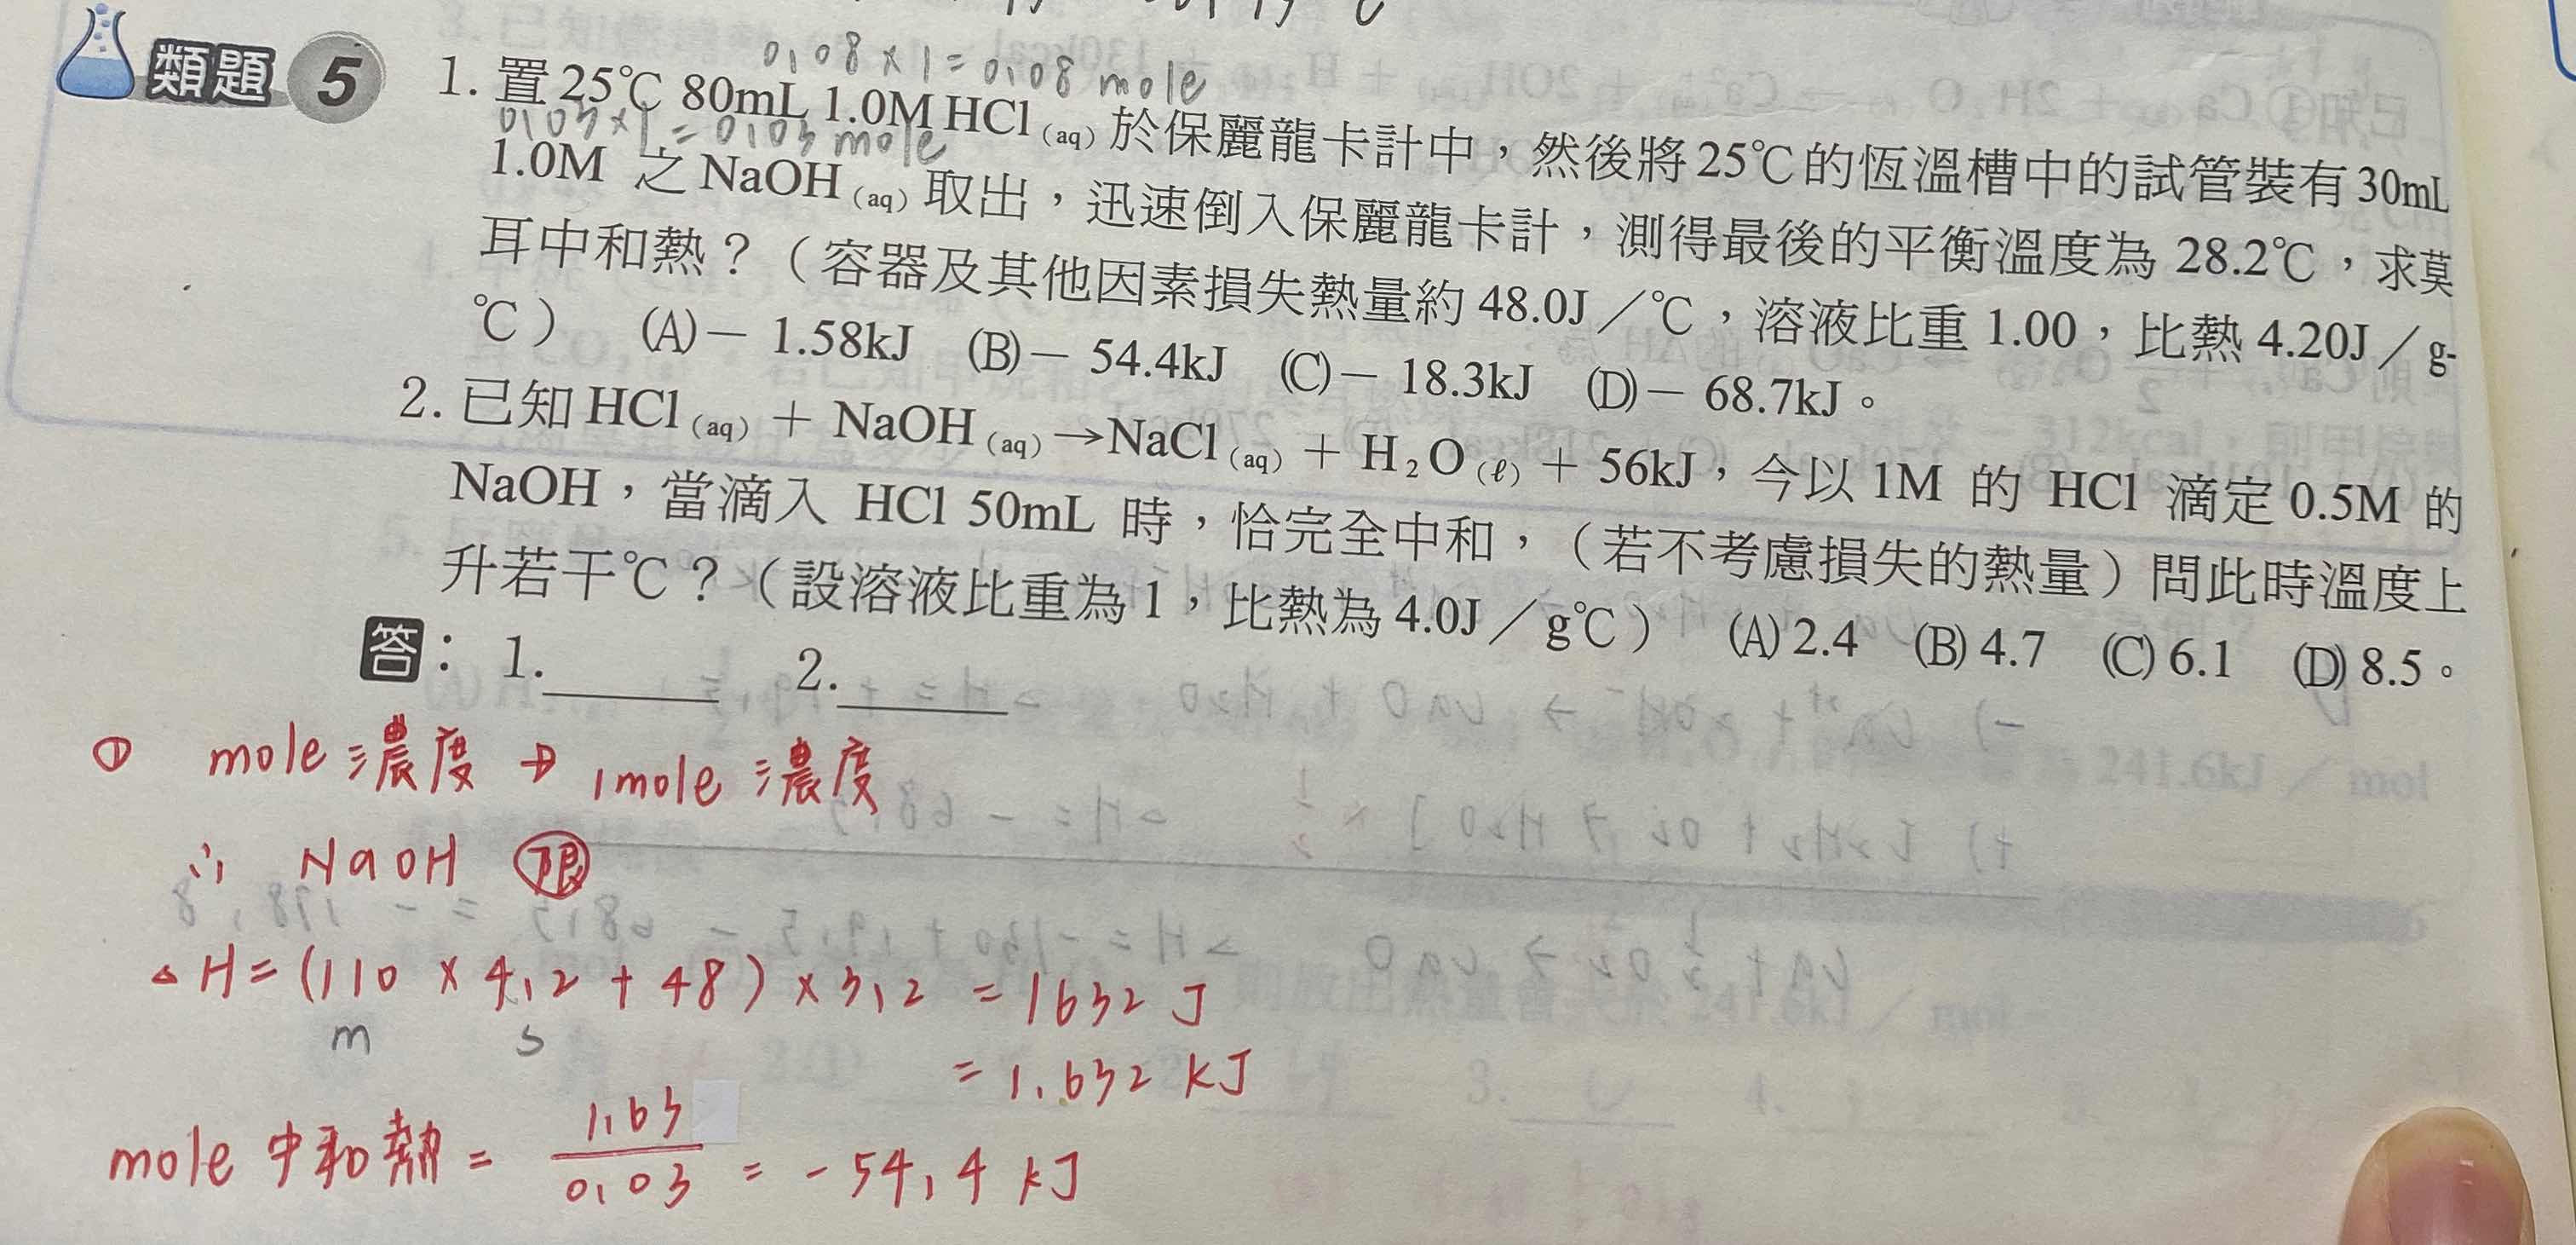 類題 5
0.08 × 1 = 0.08 mole
1. 置25℃ 80mL 1.0M HCl(aq)於保麗龍卡計中，然後將25℃的恆溫槽中的試管裝有30mL
0.03 × 1 = 0.03 mole
1.0M 之NaOH(aq)取出，迅速倒入保麗龍卡計，測得最後的平衡溫度為 28.2℃，求莫
耳中和熱？（容器及其他因素損失熱量約 48.0J／℃，溶液比重 1.00，比熱 4.20J／g-
℃） (A)－ 1.58kJ (B)－ 54.4kJ (C)－ 18.3kJ (D)－ 68.7kJ。
2. 已知HCl(aq)＋ NaOH(aq)→NaCl(aq)＋ H₂O(ℓ)＋ 56kJ，今以 1M 的 HCl 滴定 0.5M 的
NaOH，當滴入 HCl 50mL 時，恰完全中和，（若不考慮損失的熱量）問此時溫度上
升若干℃？（設溶液比重為 1，比熱為 4.0J／g℃） (A) 2.4 (B) 4.7 (C) 6.1 (D) 8.5。
答： 1. 2.
① mole 濃度 → 1mole 濃度
∴ NaOH 限
△H = (110 × 4.2 + 48) × 3.2 = 1632 J
m s
= 1.632 kJ
mole 中和熱 = 1.63 / 0.03 = -54.4 kJ